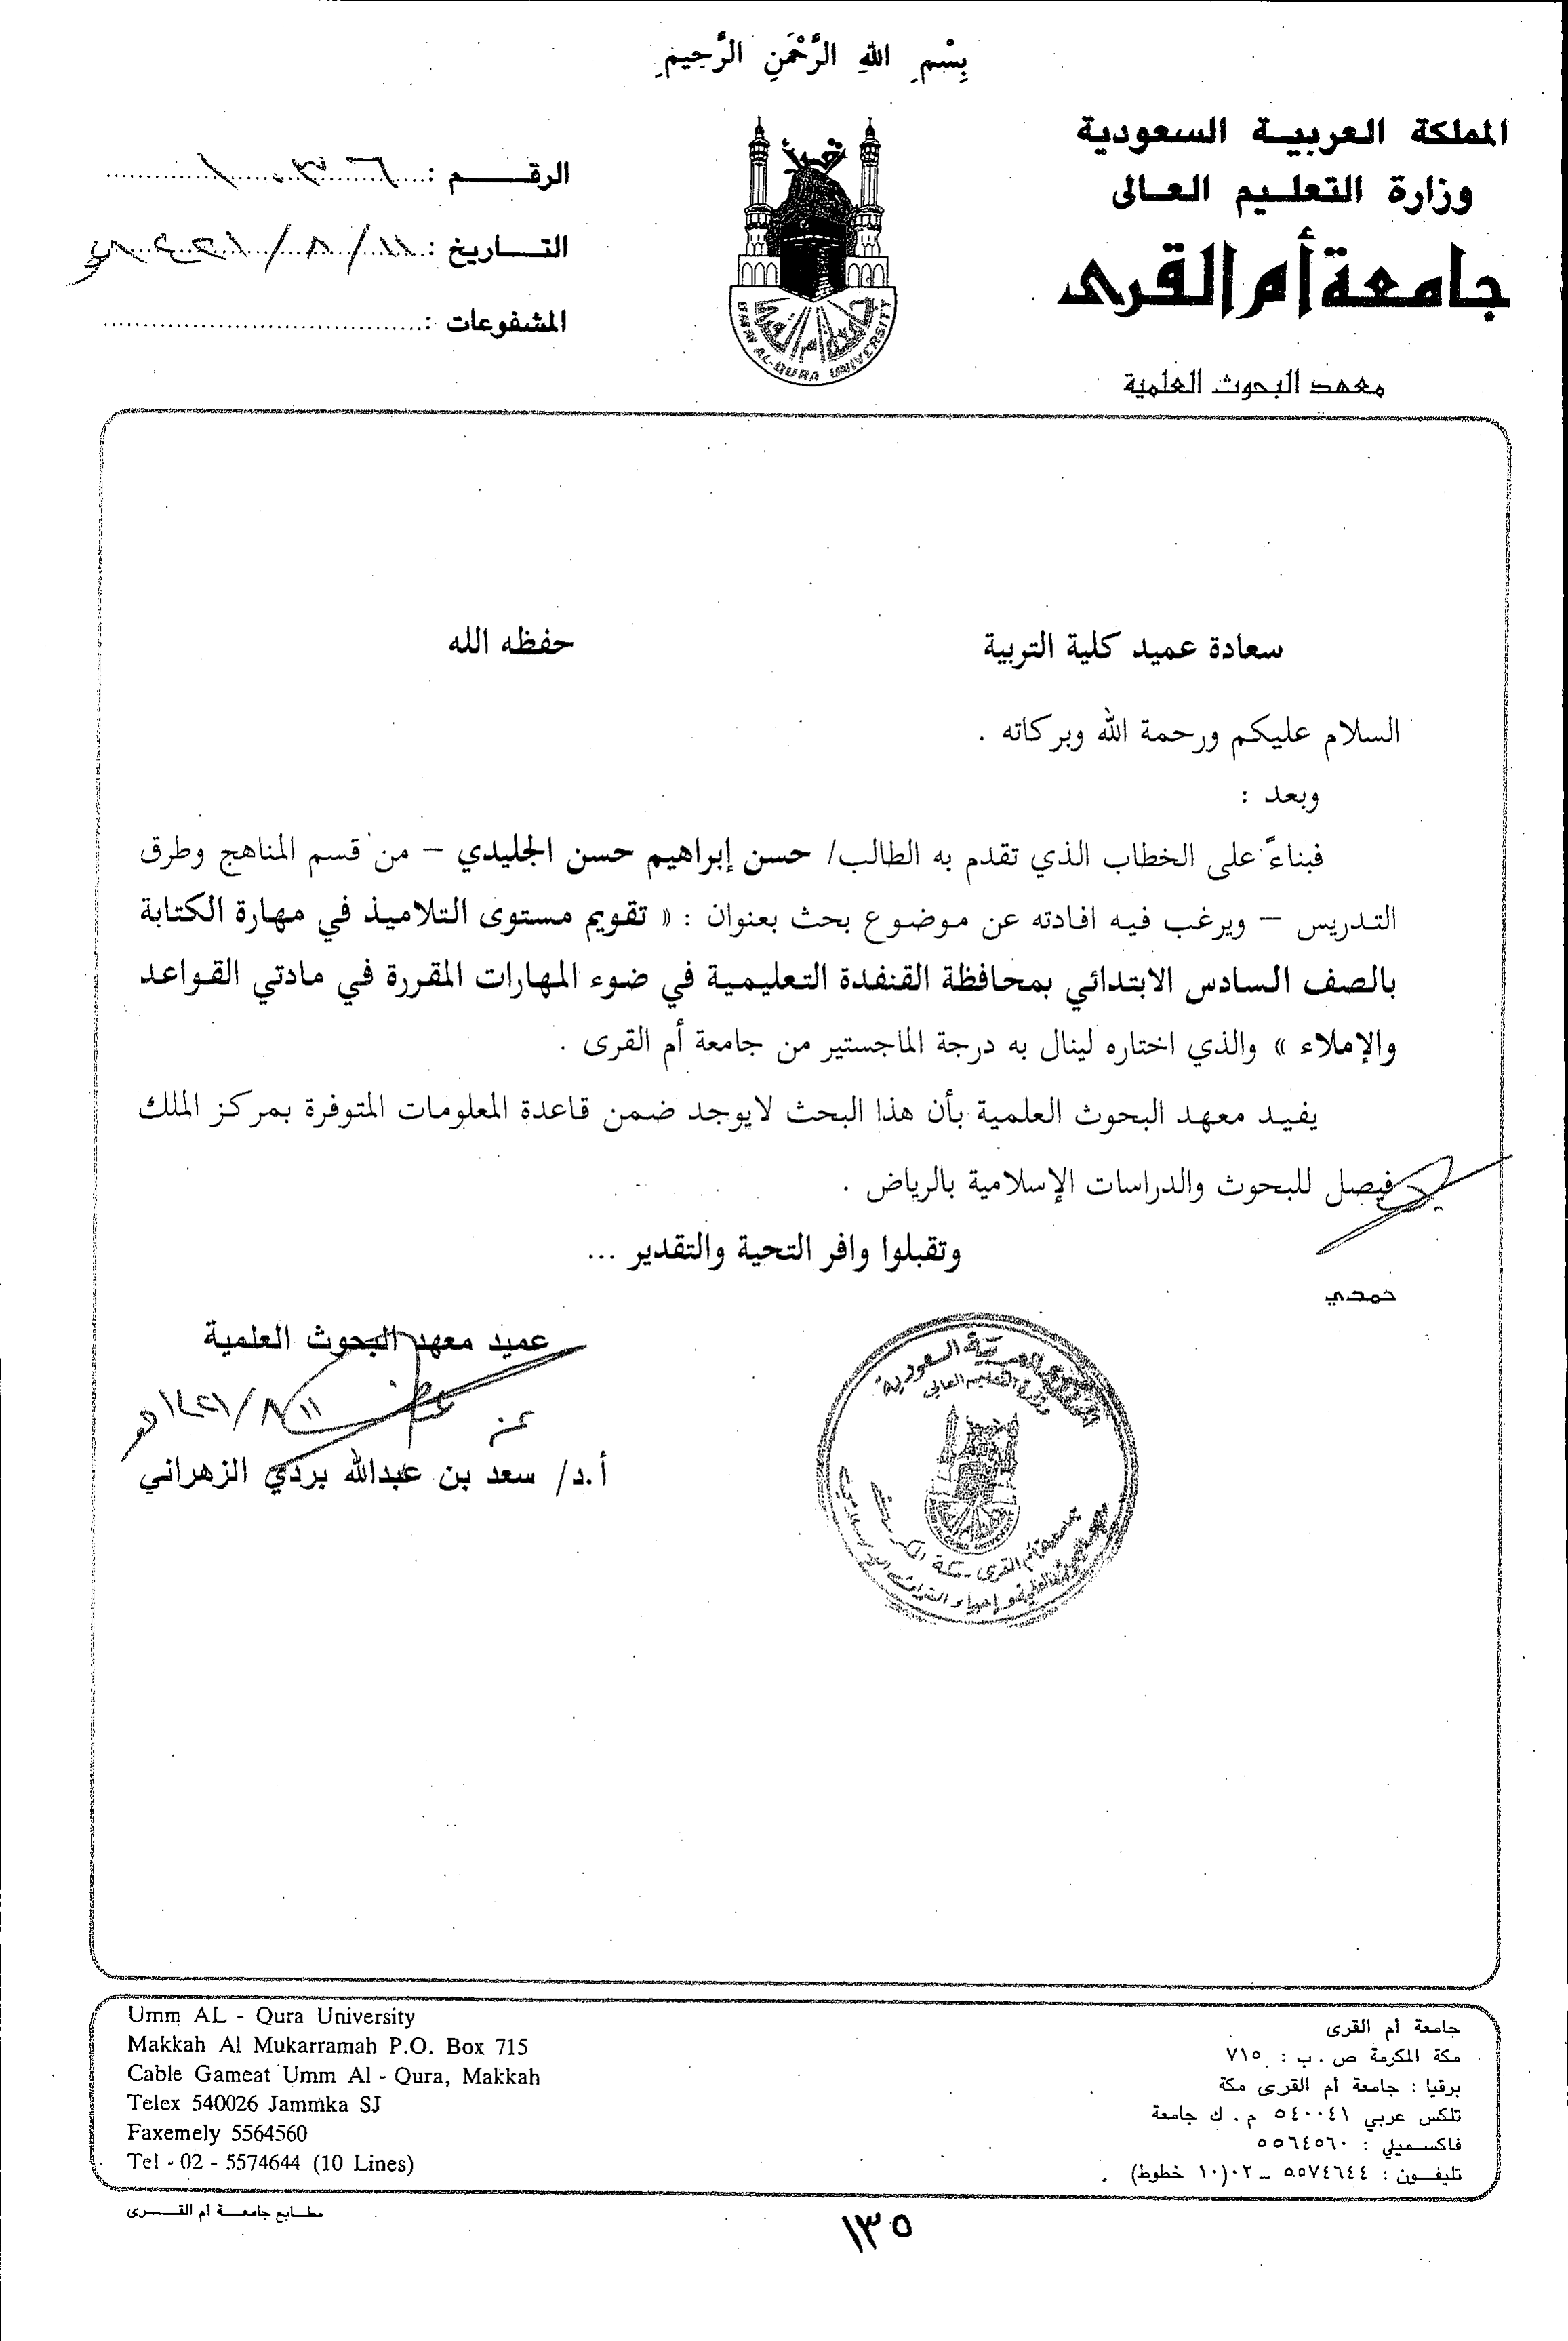 بِسْمِ اللهِ الرَّحْمَنِ الرَّحِيمِ
المملكة العربية السعودية
وزارة التعليم العالى
جامعة أم القرى
معهد البحوث العلمية
الرقم :
التاريخ : ١١/٨/
المشفوعات :
UMM AL-QURA UNIVERSITY
سعادة عميد كلية التربية حفظه الله
السلام عليكم ورحمة الله وبركاته .
وبعد :
فبناءً على الخطاب الذي تقدم به الطالب/ حسن إبراهيم حسن الجليدي – من قسم المناهج وطرق
التدريس – ويرغب فيه افادته عن موضوع بحث بعنوان : « تقويم مستوى التلاميذ في مهارة الكتابة
بالصف السادس الابتدائي بمحافظة القنفدة التعليمية في ضوء المهارات المقررة في مادتي القواعد
والإملاء » والذي اختاره لينال به درجة الماجستير من جامعة أم القرى .
يفيد معهد البحوث العلمية بأن هذا البحث لايوجد ضمن قاعدة المعلومات المتوفرة بمركز الملك
فيصل للبحوث والدراسات الإسلامية بالرياض .
وتقبلوا وافر التحية والتقدير ...
حمدي
عميد معهد البحوث العلمية
١١/٨/١٤٢١هـ
أ.د/ سعد بن عبدالله بردي الزهراني
المملكة العربية السعودية
وزارة التعليم العالي
جامعة أم القرى - مكة المكرمة
Umm AL - Qura University
Makkah Al Mukarramah P.O. Box 715
Cable Gameat Umm Al - Qura, Makkah
Telex 540026 Jammka SJ
Faxemely 5564560
Tel - 02 - 5574644 (10 Lines)
جامعة أم القرى
مكة المكرمة ص . ب : ٧١٥
برقيا : جامعة أم القرى مكة
تلكس عربي ٥٤٠٠٤١ م . ك جامعة
فاكسميلي : ٥٥٦٤٥٦٠
تليفون : ٥٥٧٤٦٤٤ – ٠٢ (١٠ خطوط)
مطابع جامعة أم القرى
١٣٥